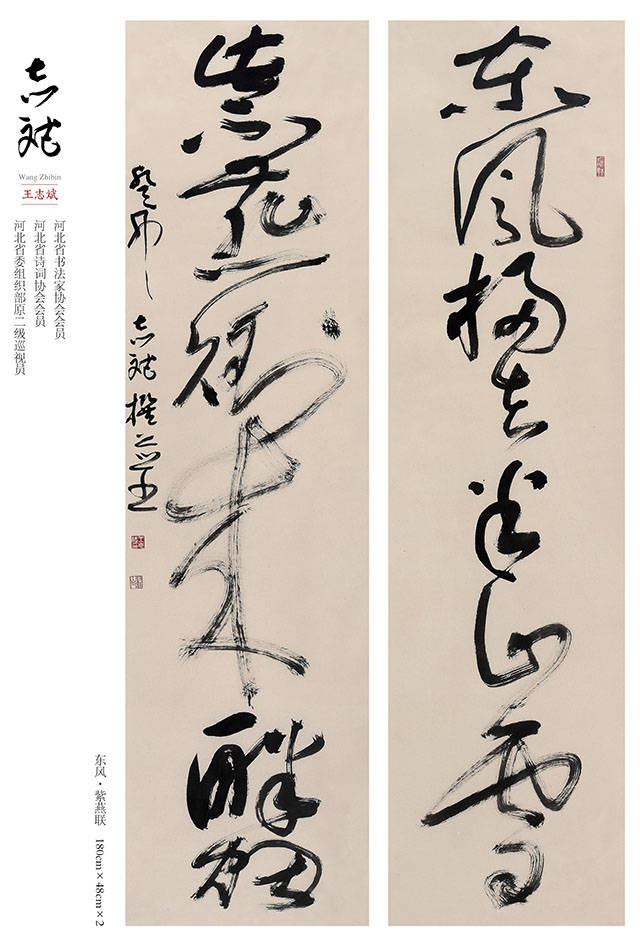 志斌
Wang Zhibin
王志斌
河北省书法家协会会员
河北省诗词协会会员
河北省委组织部原二级巡视员
东风扫去半山雪
紫燕衔来
癸卯 志斌撰
东风·紫燕联 180cm×48cm×2